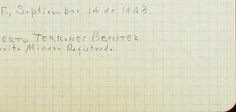 F., Septiembre 14 de 1943.
ERTO TERRONES BENITEZ
rito Minero Registrado